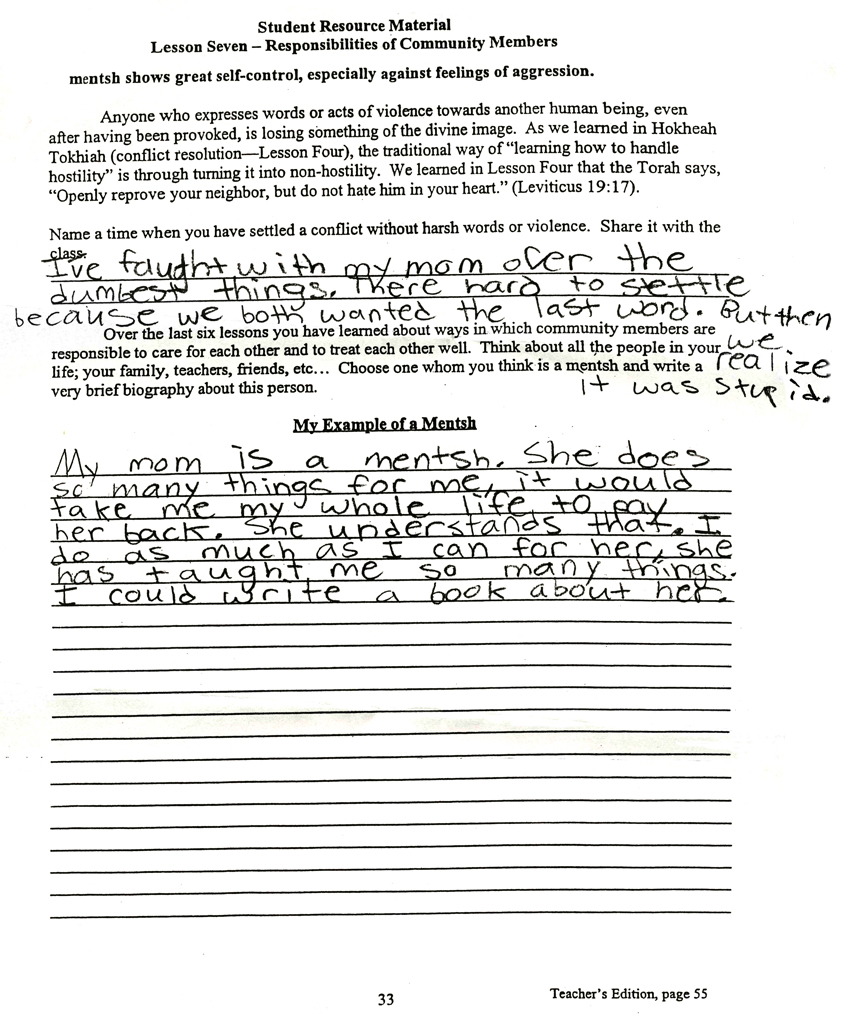 Student Resource Material
Lesson Seven – Responsibilities of Community Members
mentsh shows great self-control, especially against feelings of aggression.
Anyone who expresses words or acts of violence towards another human being, even
after having been provoked, is losing something of the divine image. As we learned in Hokheah
Tokhiah (conflict resolution—Lesson Four), the traditional way of “learning how to handle
hostility” is through turning it into non-hostility. We learned in Lesson Four that the Torah says,
“Openly reprove your neighbor, but do not hate him in your heart.” (Leviticus 19:17).
Name a time when you have settled a conflict without harsh words or violence. Share it with the
class.
I've faught with my mom over the
dumbest things. There hard to settle
because we both wanted the last word. But then
we
realize
It was stupid.
Over the last six lessons you have learned about ways in which community members are
responsible to care for each other and to treat each other well. Think about all the people in your
life; your family, teachers, friends, etc... Choose one whom you think is a mentsh and write a
very brief biography about this person.
My Example of a Mentsh
My mom is a mentsh. She does
so many things for me, it would
take me my whole life to pay
her back. She understands that. I
do as much as I can for her, she
has taught me so many things.
I could write a book about her.
33
Teacher's Edition, page 55